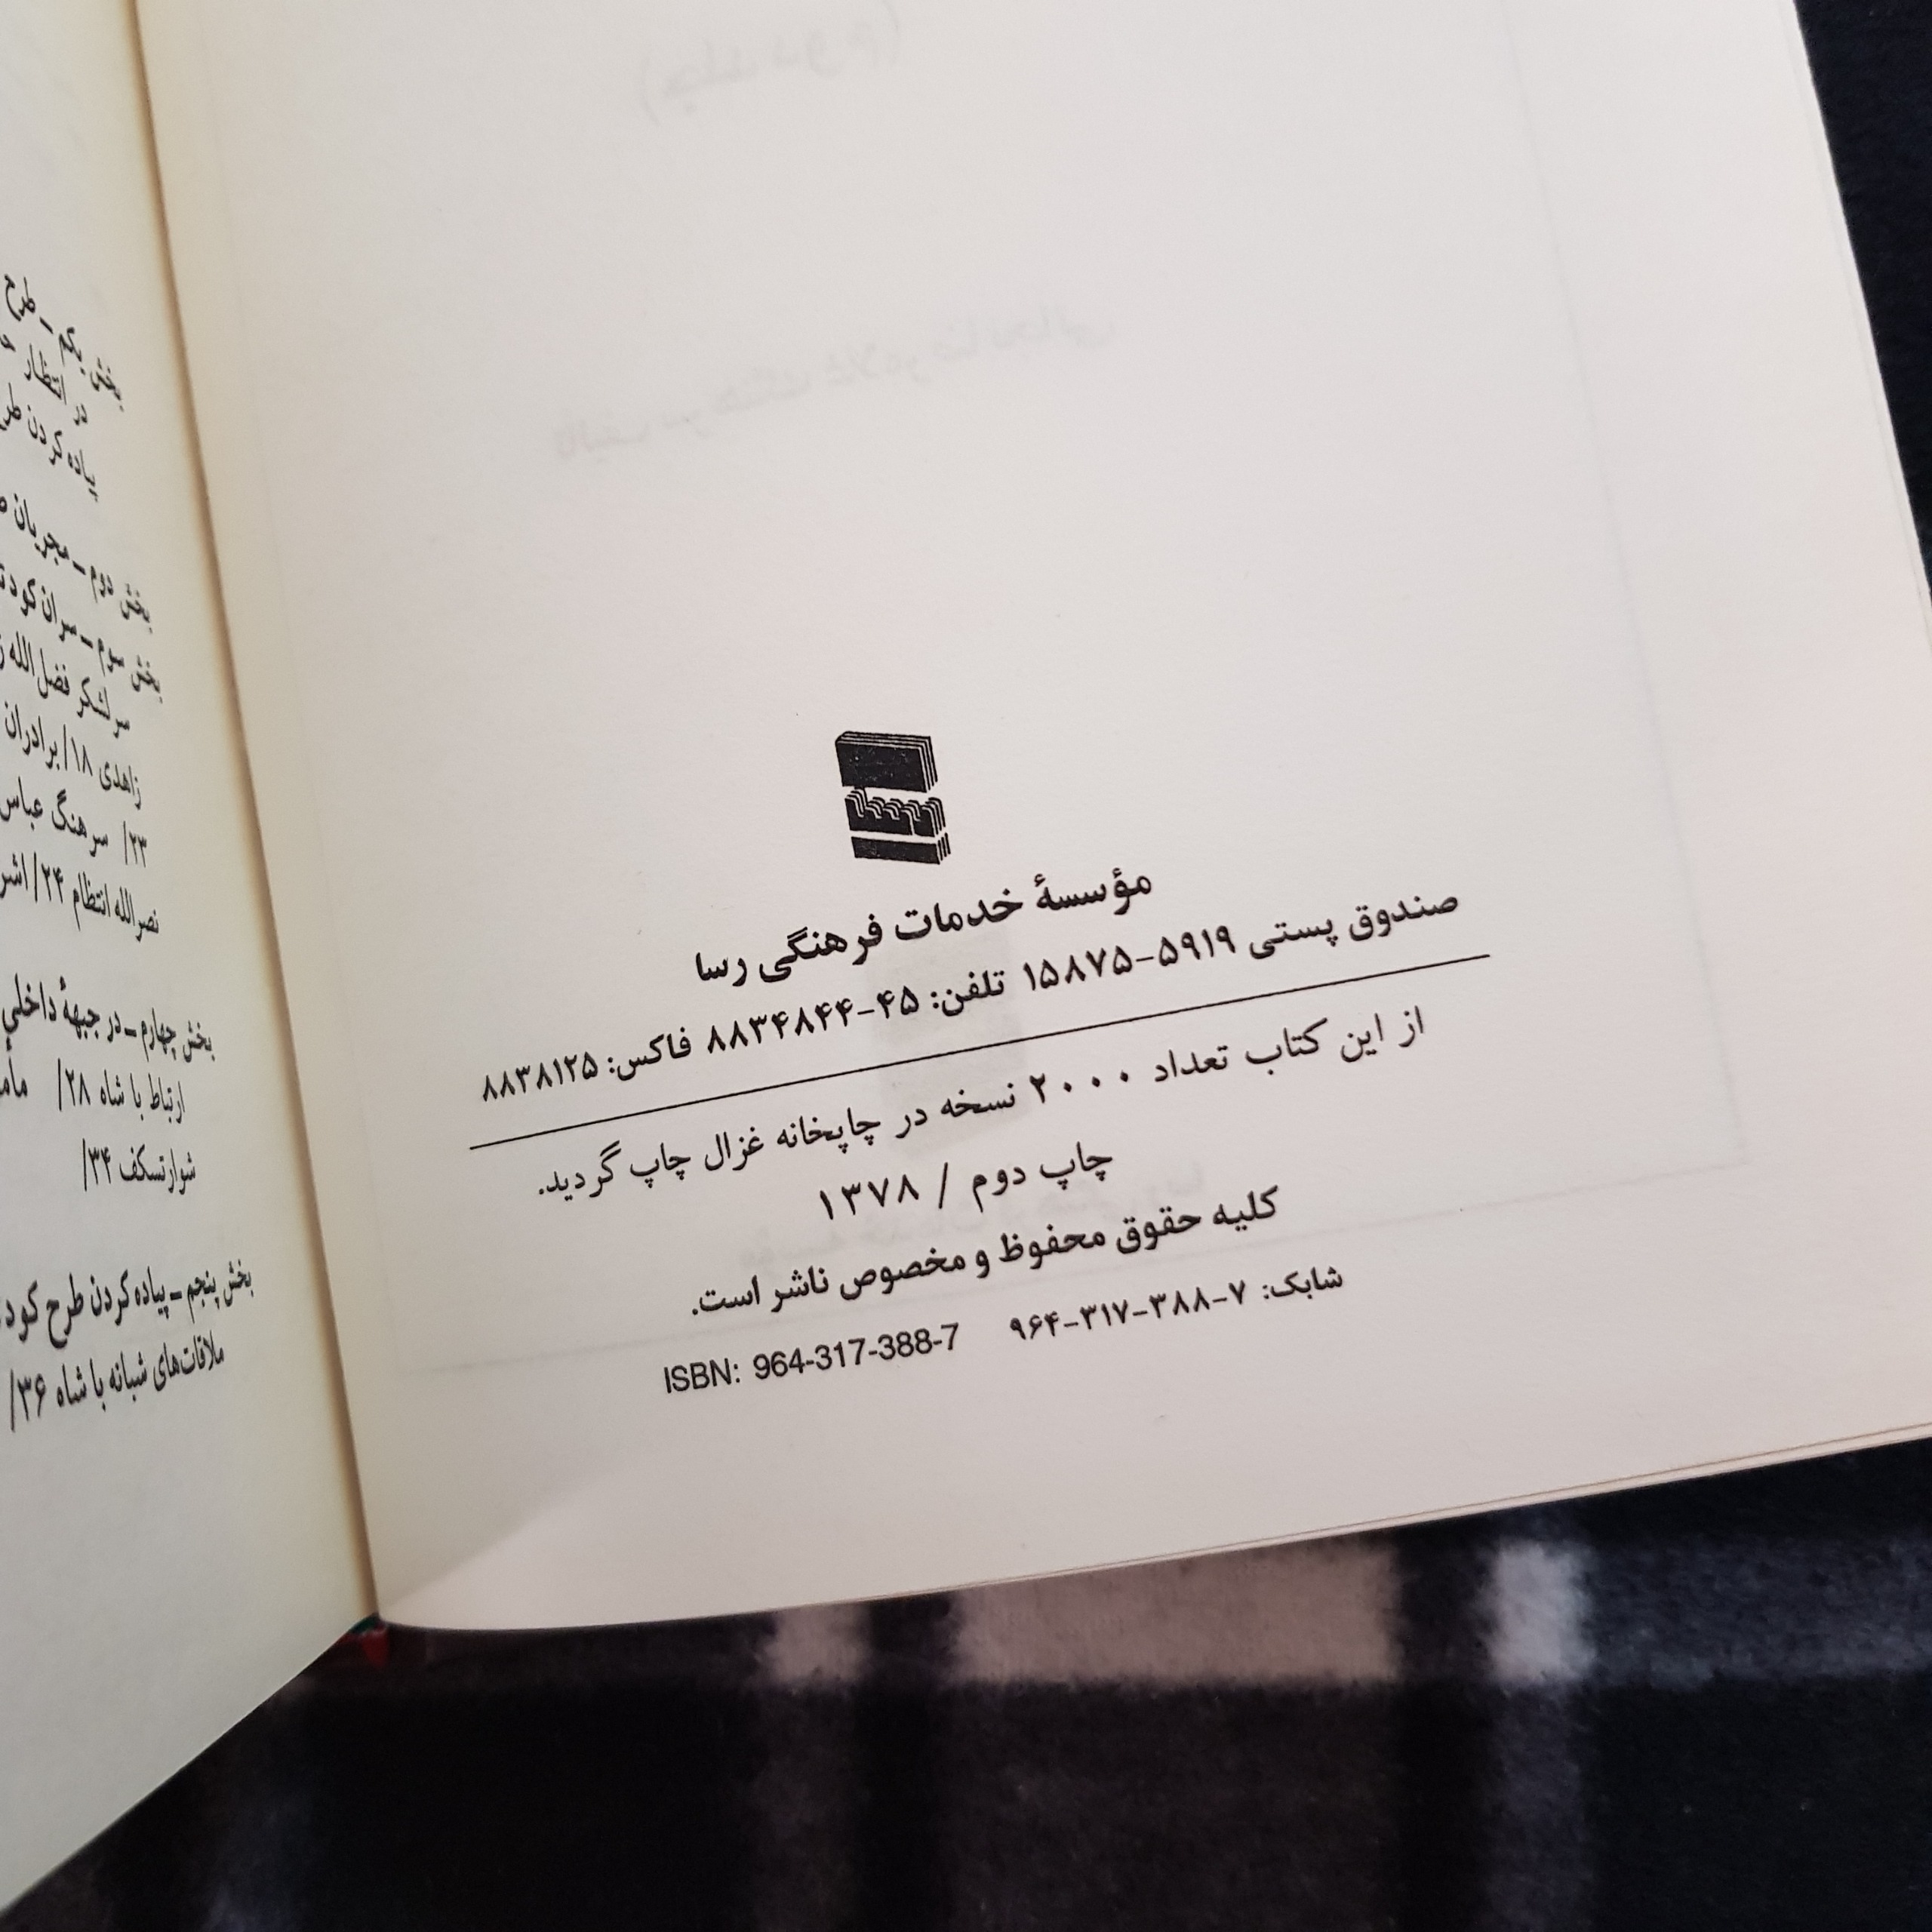 رسا
مؤسسهٔ خدمات فرهنگی رسا
صندوق پستی ۵۹۱۹-۱۵۸۷۵ تلفن: ۴۵-۸۸۳۴۸۴۴ فاکس: ۸۸۳۸۱۲۵
از این کتاب تعداد ۲۰۰۰ نسخه در چاپخانه غزال چاپ گردید.
چاپ دوم / ۱۳۷۸
کلیه حقوق محفوظ و مخصوص ناشر است.
شابک: ۷-۳۸۸-۳۱۷-۹۶۴ ISBN: 964-317-388-7
بخش یکم ـ طرح
در انتظار
پیاده کردن
بخش دوم ـ مجریان
بخش سوم ـ سران
سرلشکر فضل‌الله
زاهدی ۱۸/ برادران
۲۳/ سرهنگ عباس
نصرالله انتظام ۲۴/
بخش چهارم ـ در جبههٔ داخلی
ارتباط با شاه ۲۸/
شوارتسکف ۳۴/
بخش پنجم ـ پیاده کردن طرح
ملاقات‌های شبانه با شاه ۳۶/